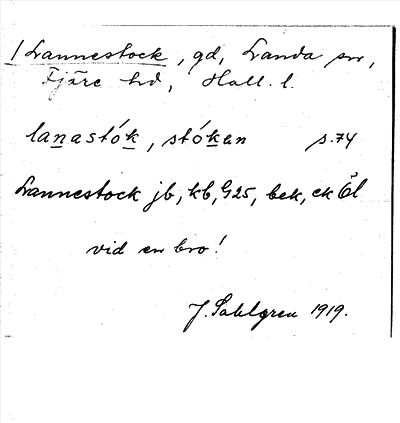 1 Lannestock, gd, Landa sn,
Fjäre hd, Hall. l.
lanastók, stókan s.74
Lannestock jb, kb, G25, bek, ek Öl
vid en bro!
J. Sahlgren 1919.